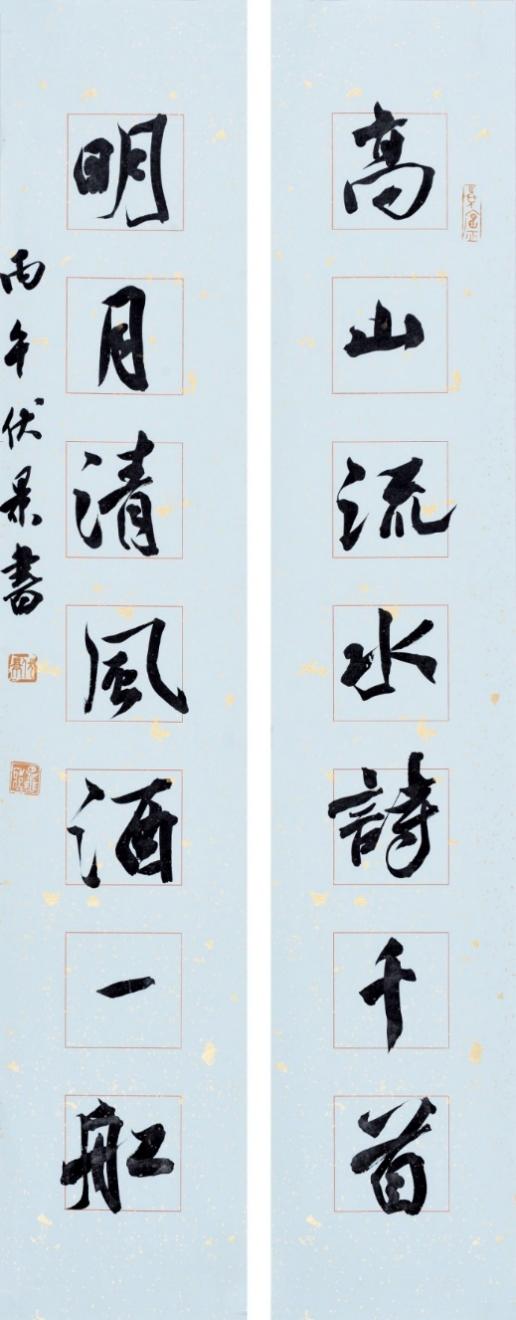 高山流水詩千首
明月清風酒一船
丙午伏景書